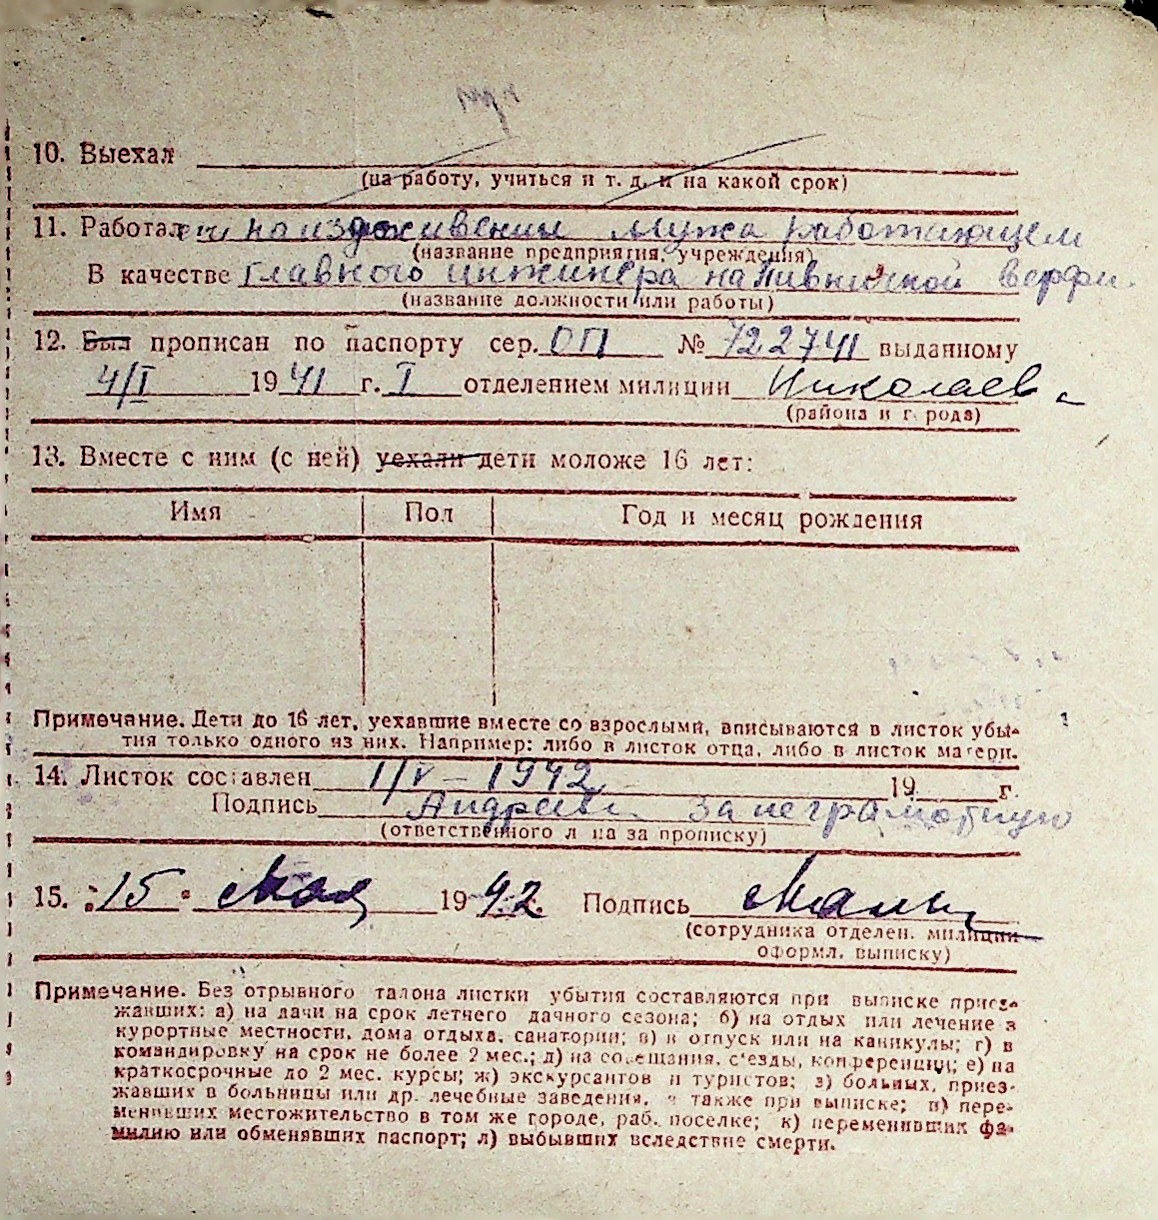 10. Выехал
(на работу, учиться и т. д. и на какой срок)
11. Работал на издживении мужа работающем
(название предприятия, учреждения)
В качестве главного инжинера на Пивнічной верфи.
(название должности или работы)
12. Был прописан по паспорту сер. ОП № 722741 выданному
4/I 1941 г. I отделением милиции Николаев
(района и г рода)
13. Вместе с ним (с ней) уехали дети моложе 16 лет:
Имя Пол Год и месяц рождения
Примечание. Дети до 16 лет, уехавшие вместе со взрослыми, вписываются в листок убы-
тия только одного из них. Например: либо в листок отца, либо в листок матери.
14. Листок составлен 1/V - 1942 19 г.
Подпись за неграмотную
(ответственного л ца за прописку)
15. "15" Мая 1942. Подпись
(сотрудника отделен. милиции
оформл. выписку)
Примечание. Без отрывного талона листки убытия составляются при выписке приез-
жавших: а) на дачи на срок летнего дачного сезона; б) на отдых или лечение в
курортные местности, дома отдыха, санатории; в) в отпуск или на каникулы; г) в
командировку на срок не более 2 мес.; д) на совещания, с'езды, конференции; е) на
краткосрочные до 2 мес. курсы; ж) экскурсантов и туристов; з) больных, приез-
жавших в больницы или др. лечебные заведения, а также при выписке; и) пере-
менивших местожительство в том же городе, раб. поселке; к) переменивших фа-
милию или обменявших паспорт; л) выбывших вследствие смерти.